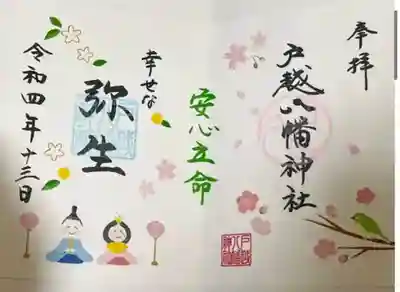 奉拝
戸越八幡神社
安心立命
幸せな
弥生
令和四年十三日